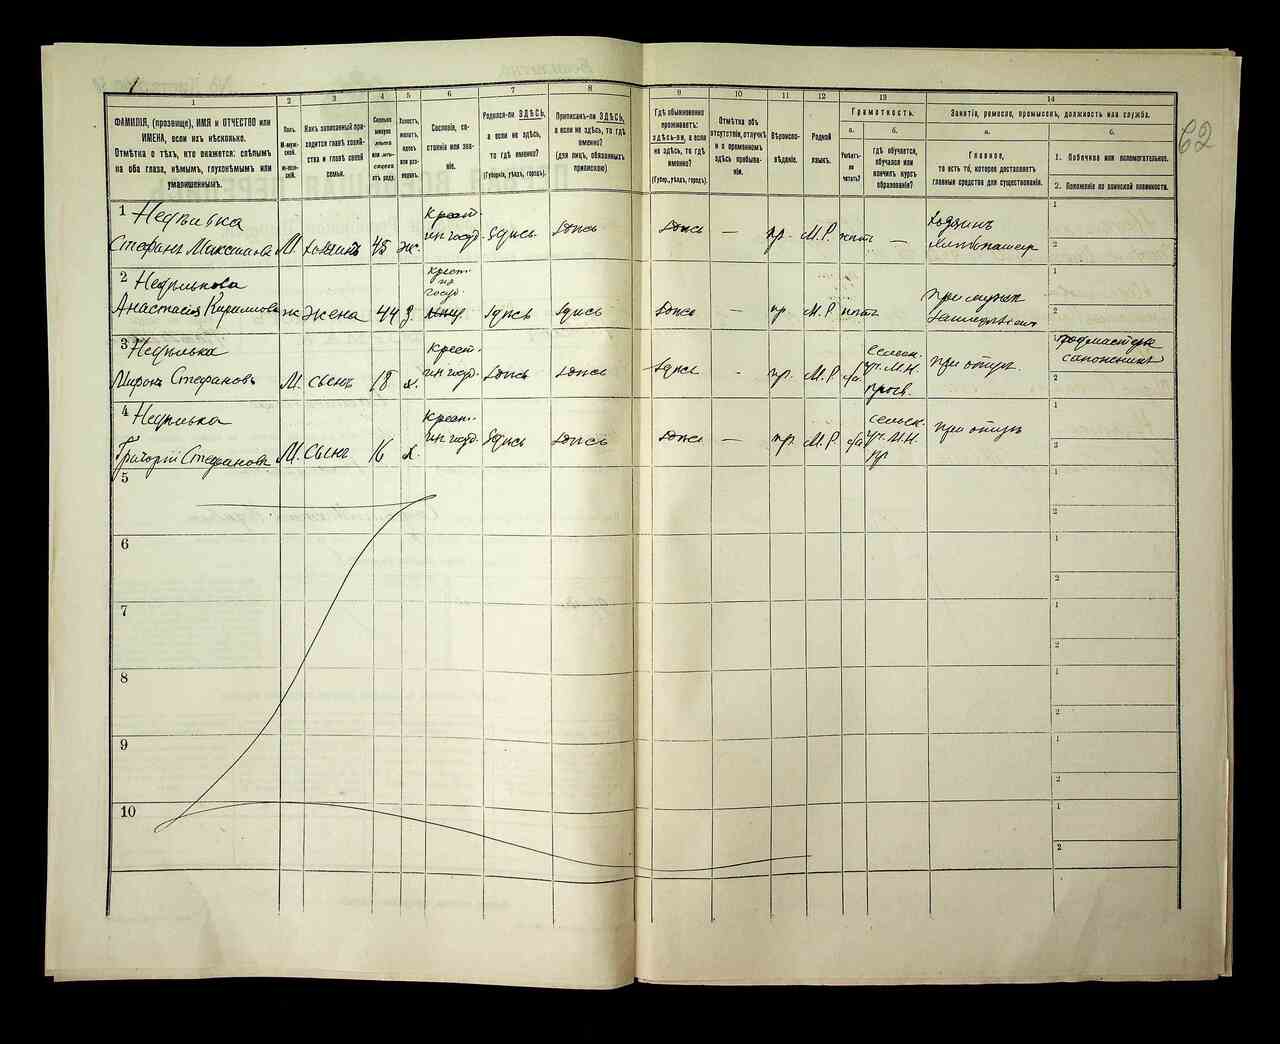 1
62
1
2
3
4
5
6
7
8
9
10
11
12
13
14
ФАМИЛІЯ, (прозвище), ИМЯ и ОТЧЕСТВО или
ИМЕНА, если ихъ нѣсколько.
Отмѣтка о тѣхъ, кто окажется: слѣпымъ
на оба глаза, нѣмымъ, глухонѣмымъ или
умалишеннымъ.
Полъ.
М-муж-
ской.
Ж-жен-
скій.
Какъ записанный при-
ходится главѣ хозяй-
ства и главѣ своей
семьи.
Сколько
минуло
лѣтъ
или мѣ-
сяцевъ
отъ роду.
Холостъ,
женатъ,
вдовъ
или раз-
веденъ.
Сословіе, со-
стояніе или зва-
ніе.
Родился-ли ЗДѢСЬ,
а если не здѣсь,
то гдѣ именно?
(Губернія, уѣздъ, городъ).
Приписанъ-ли ЗДѢСЬ,
а если не здѣсь, то гдѣ
именно?
(для лицъ, обязанныхъ
припискою)
Гдѣ обыкновенно
проживаетъ:
здѣсь-ли, а если
не здѣсь, то гдѣ
именно?
(Губер., уѣздъ, городъ).
Отмѣтка объ
отсутствіи, отлучкѣ
и о временномъ
здѣсь пребыва-
ніи.
Вѣроиспо-
вѣданіе.
Родной
языкъ.
Грамотность.
а.
Умѣетъ-
ли
читать?
б.
Гдѣ обучается,
обучался или
кончилъ курсъ
образованія?
Занятіе, ремесло, промыселъ, должность или служба.
а.
Главное,
то есть то, которое доставляетъ
главныя средства для существованія.
б.
1. Побочное или вспомогательное.
2. Положеніе по воинской повинности.
1 Недѣлька
Стефанъ Максимовъ М. хозяинъ 45 ж. Крест. ин госуд. здѣсь здѣсь здѣсь — пр. М.Р. нѣтъ — хозяинъ
1
2
2
Анастасія Кирилова ж жена 44 з. крест. госуд. здѣсь здѣсь здѣсь — пр М.Р. нѣтъ при мужѣ
1
2
3 Недѣлька
Миронъ Стефановъ М. сынъ 18 х. Крест. ин госуд. здѣсь здѣсь здѣсь - пр. М.Р да сельск. уч. М.Н. Просв. при отцѣ
1
2
4 Недѣлька
Григорій Стефановъ М. сынъ 16 х. Крест. ин госуд. здѣсь здѣсь здѣсь — пр. М.Р. да сельск. уч. М.Н. пр при отцѣ
1
2
5
1
2
6
1
2
7
1
2
8
1
2
9
1
2
10
1
2